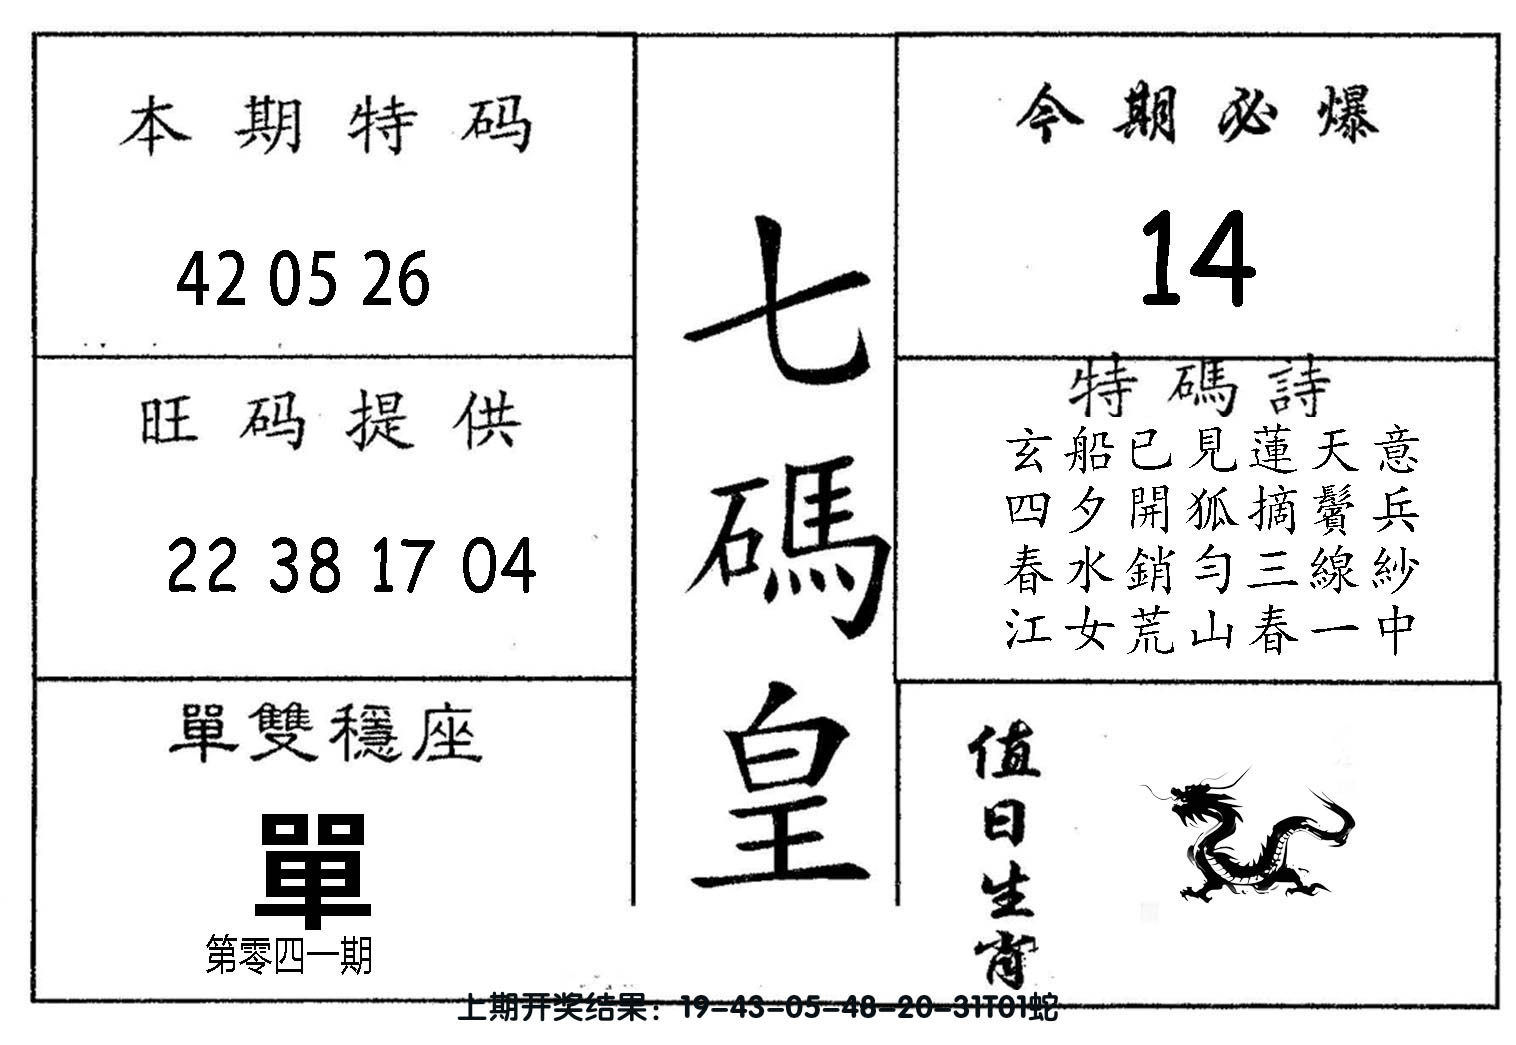 本期特码
42 05 26
旺码提供
22 38 17 04
單雙穩座
單
第零四一期
七碼皇
今期必爆
14
特碼詩
玄船已見蓮天意
四夕開狐摘鬢兵
春水銷勻三線紗
江女荒山春一中
值日生肖
上期开奖结果：19-43-05-48-20-31T01蛇